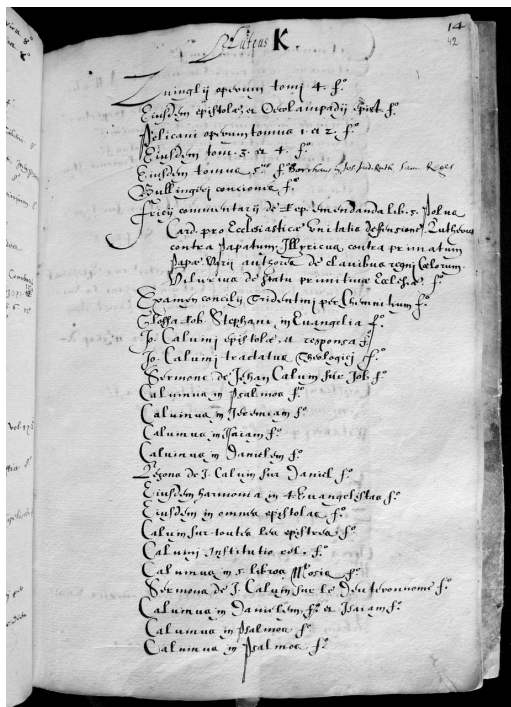 14
42
Pluteus K
Zuinglij operum tomj 4. fo.
Eiusdem epistolæ et Oecolampadij epist. fo.
Pelicani operum tomus 1. et 2. fo.
Eiusdem tom. 3. et 4. fo.
Eiusdem tomus 5.us fo. Borrhaus in Jos. Jud. Ruth. Sam. Reges
Bullingerj conciones fo.
Fricij commentarij de Rep. emendanda lib. 5. Polus
Card. pro Ecclesiasticæ Unitatis defensione. Lutherus
contra Papatum. Illyricus contra primatum
Papæ. Varij authores de clavibus regnj Cœlorum.
de statu primitivæ Ecclesiæ. fo.
Examen concilij Tridentinj per Chemnitium fo.
Glossa Rob. Stephanj in Evangelia fo.
Jo. Calvinj epistolæ et responsa fo.
Jo. Calvinj tractatus Theologicj fo.
Sermons de Jehan Calvin sur Job. fo.
Calvinus in Psalmos fo.
Calvinus in Jeremiam fo.
Calvinus in Isaiam fo.
Calvinus in Danielem fo.
Leçons de J. Calvin sur Daniel fo.
Eiusdem harmonia in 4 Evangelistas fo.
Eiusdem in omnes epistolas fo.
Calvin sur toutes les epistres fo.
Calvinj Institutio fo.
Calvinus in 5. libros Mosis fo.
Sermons de J. Calvin sur le Deuteronnome fo.
Calvinus in Danielem fo. et Isaiam fo.
Calvinus in Psalmos fo.
Calvinus in Psalmos fo.